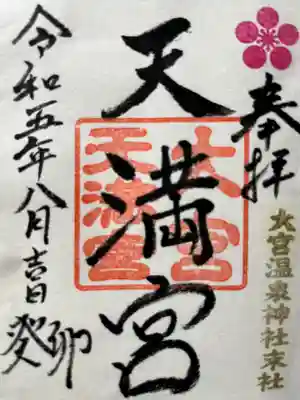 奉拝
大宮温泉神社末社
天満宮
大宮
天満宮
令和五年八月吉日
癸卯